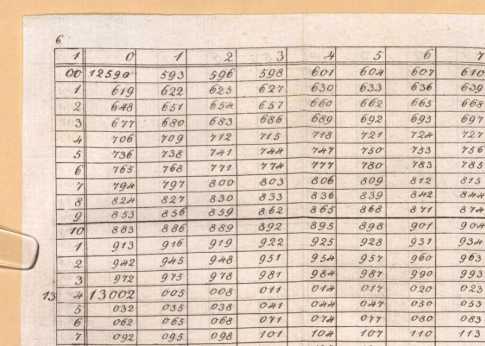 6
1 0 1 2 3 4 5 6 7
00 12590 593 596 598 601 604 607 610
1 619 622 625 627 630 633 636 639
2 648 651 654 657 660 662 665 668
3 677 680 683 686 689 692 695 697
4 706 709 712 715 718 721 724 727
5 736 738 741 744 747 750 753 756
6 765 768 771 774 777 780 783 785
7 794 797 800 803 806 809 812 815
8 824 827 830 833 836 839 842 844
9 853 856 859 862 865 868 871 874
10 883 886 889 892 895 898 901 904
1 913 916 919 922 925 928 931 934
2 942 945 948 951 954 957 960 963
3 972 975 978 981 984 987 990 993
13 4 13002 005 008 011 014 017 020 023
5 032 035 038 041 044 047 050 053
6 062 065 068 071 074 077 080 083
7 092 095 098 101 104 107 110 113